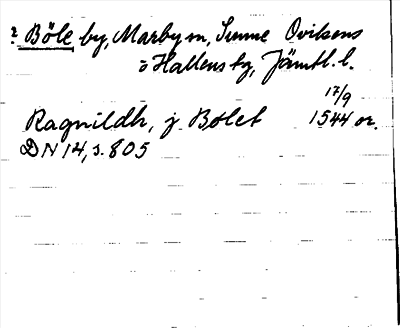 ? Böle by, Marby sn, Sunne Ovikens
o Hallens tg, Jämtl. l.
17/9
Ragnildh, j Bolet 1544 or.
DN 14, s. 805